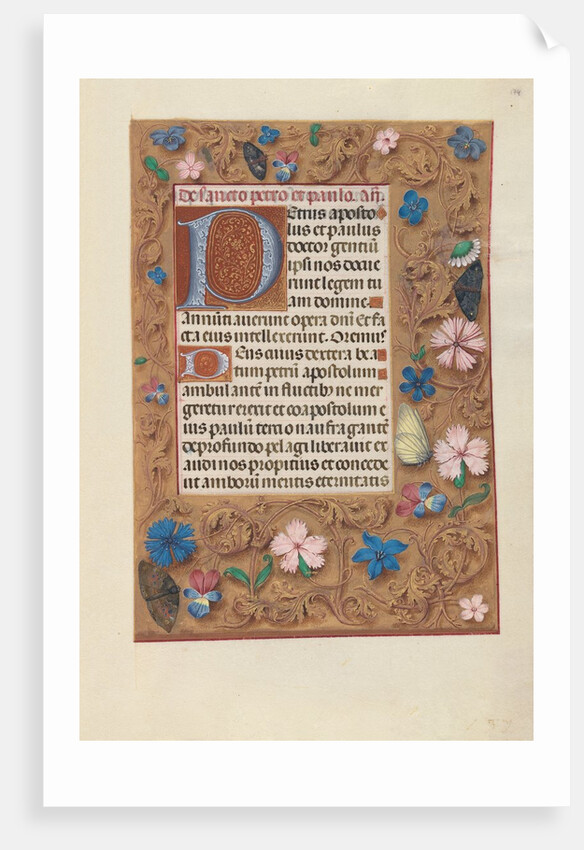 De sancto petro et paulo. Añ.
Petrus aposto
lus et paulus
doctor gentiũ
ipsi nos docue
runt legem tu
am domine.
Annuntiaverunt opera dñi Et fa
cta eius intellexerunt. Oremus
Deus cuius dextera bea
tum petrũ apostolum
ambulantẽ in fluctibꝰ ne mer
geretur erexit et coapostolum e
ius paulũ tertio naufragantẽ
de profundo pelagi liberavit ex
audi nos propitius et concede
ut amborũ meritis eternitatis